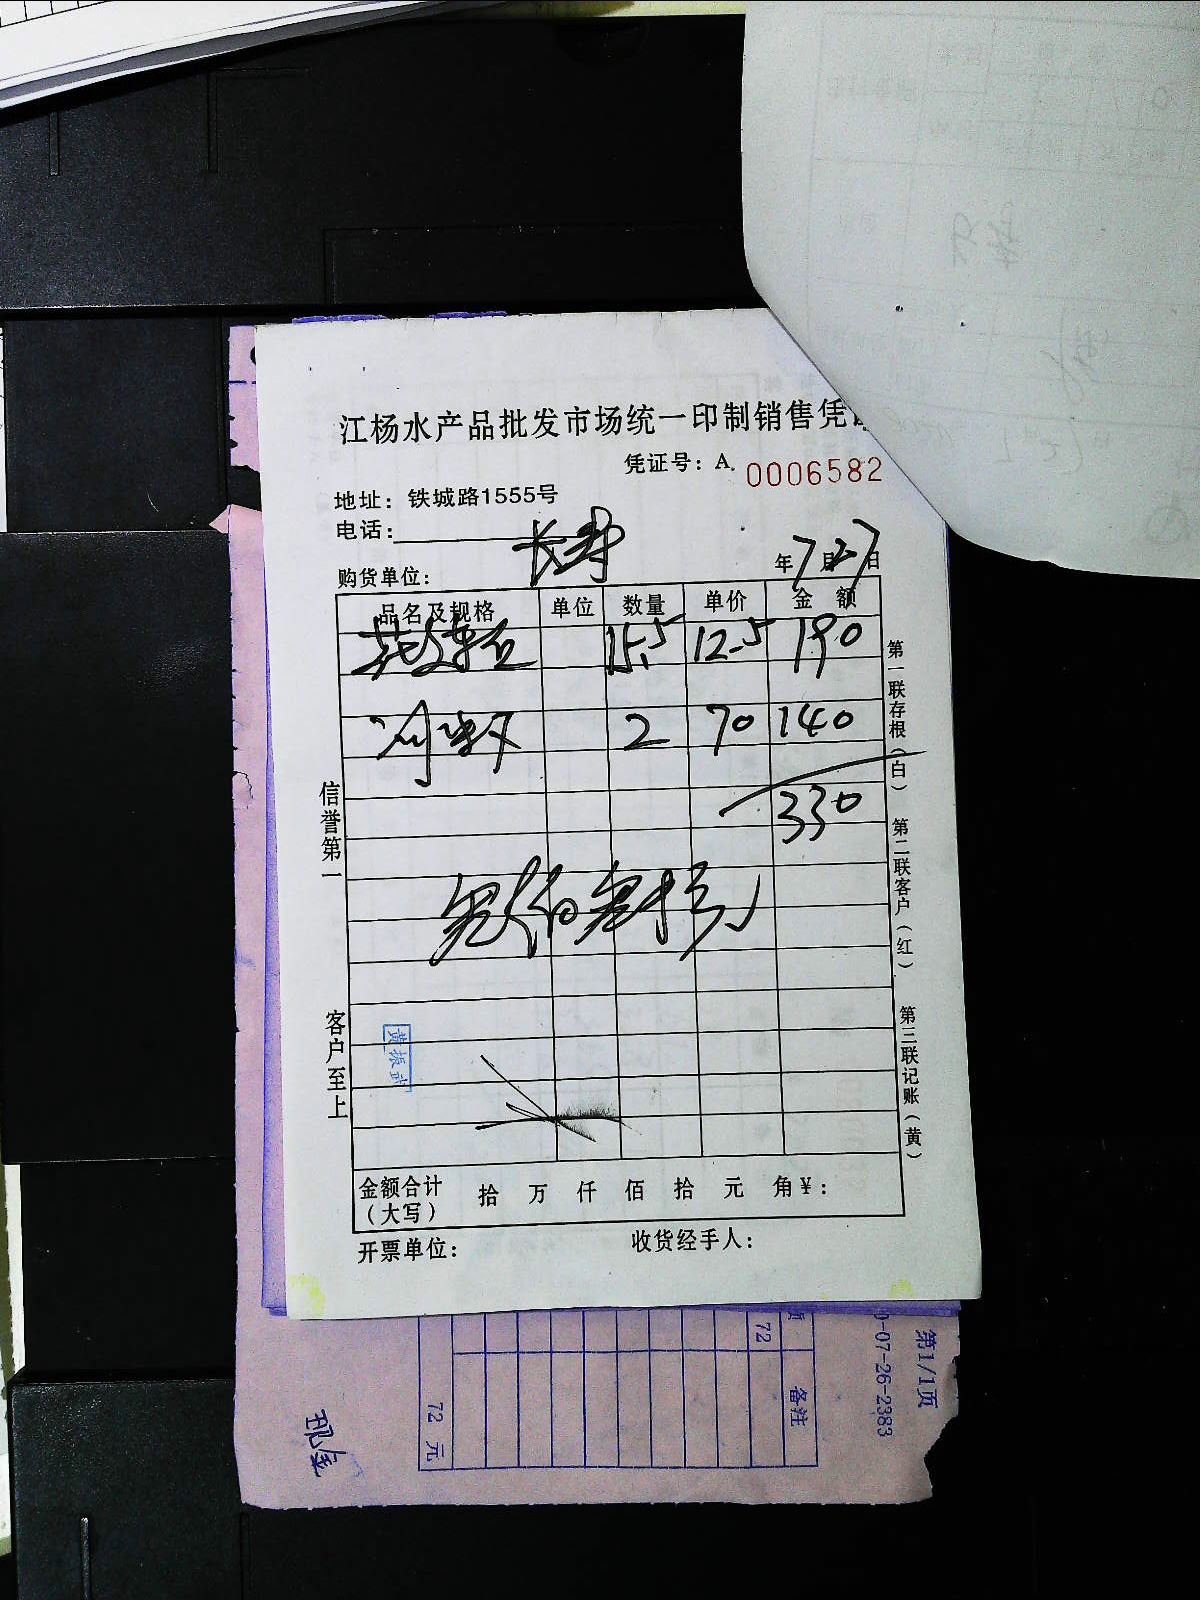 江杨水产品批发市场统一印制销售凭
凭证号：A. 0006582
地址：铁城路1555号
电话：
购货单位： 年 7 月 27 日
品名及规格 单位 数量 单价 金额
15.5 12.5 190
2 70 140
330
信誉第一
客户至上
第一联存根（白）
第二联客户（红）
第三联记账（黄）
黄振武
金额合计（大写） 拾 万 仟 佰 拾 元 角 ¥：
开票单位： 收货经手人：
第1/1页
0-07-26-2383
备注
72
72 元
现金